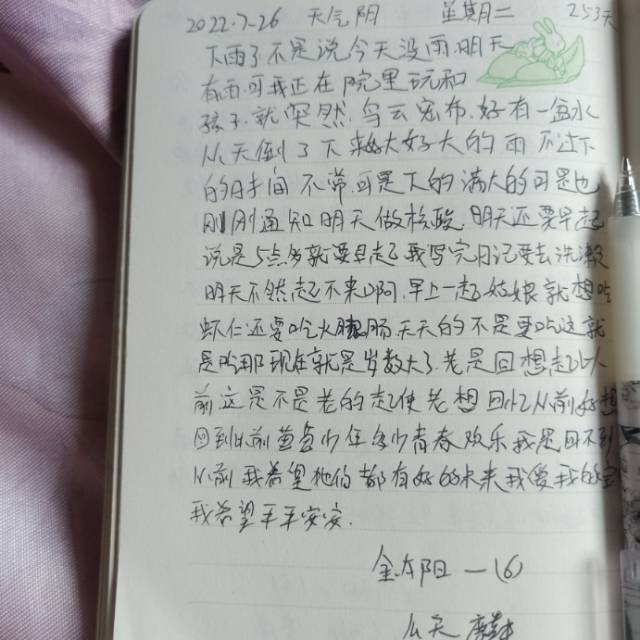 2022.7-26 天气阴 星期二 253天
下雨了不是说今天没雨,明天
有雨,可我正在院里玩和
孩子,就突然,乌云密布,好有一盆水
从天倒了下来大好大的雨 不过下
的时间不常,可是下的满大的可是也
刚刚通知明天做核酸 明天还要早起
说是5点多就要早起 我写完日记要去洗漱
明天不然起不来啊,早上一起姑娘就想吃
虾仁还要吃火腿肠 天天的不是要吃这就
是吃那 现在就是岁数大了 老是回想起以
前这是不是老的起使 老想回忆从前好想
回到从前 童年少年 青春欢乐 我是回不到
从前 我希望他们都有好的未来 我爱我的
我希望平平安安.
金太阳一(6)